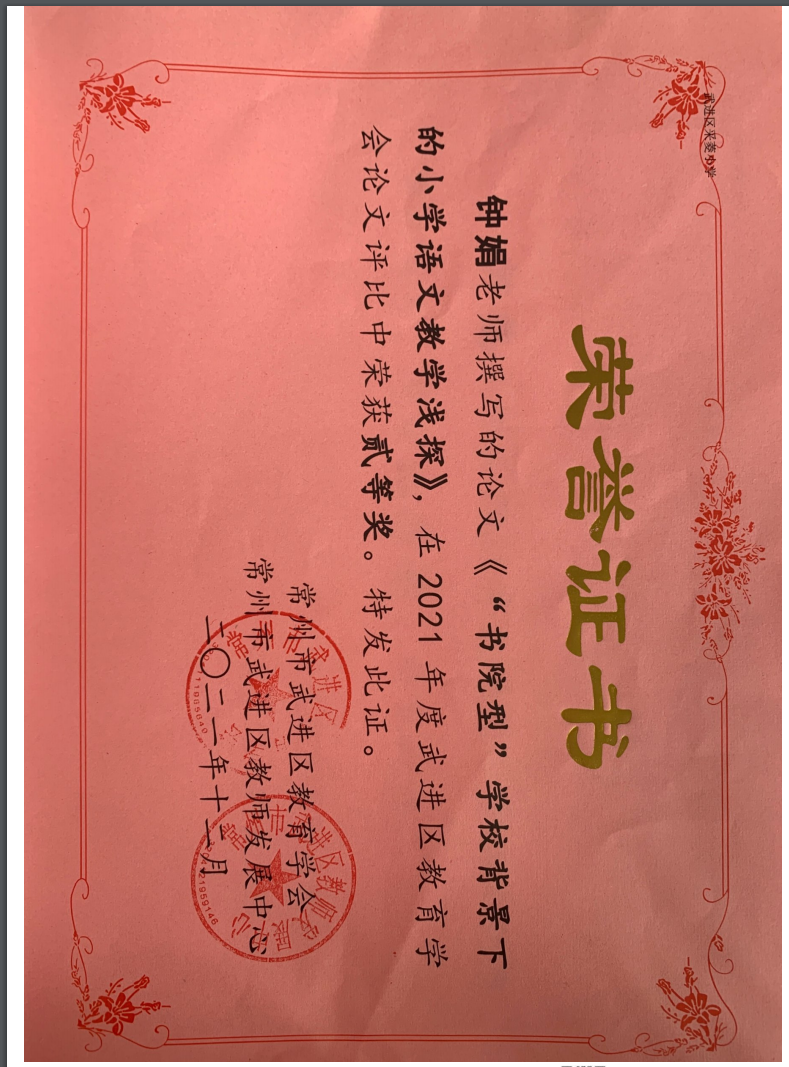 武进区采菱小学
荣誉证书
钟娟老师撰写的论文《“书院型”学校背景下
的小学语文教学浅探》，在 2021 年度武进区教育学
会论文评比中荣获贰等奖。特发此证。
常州市武进区教育学会
常州市武进区教师发展中心
二〇二一年十二月